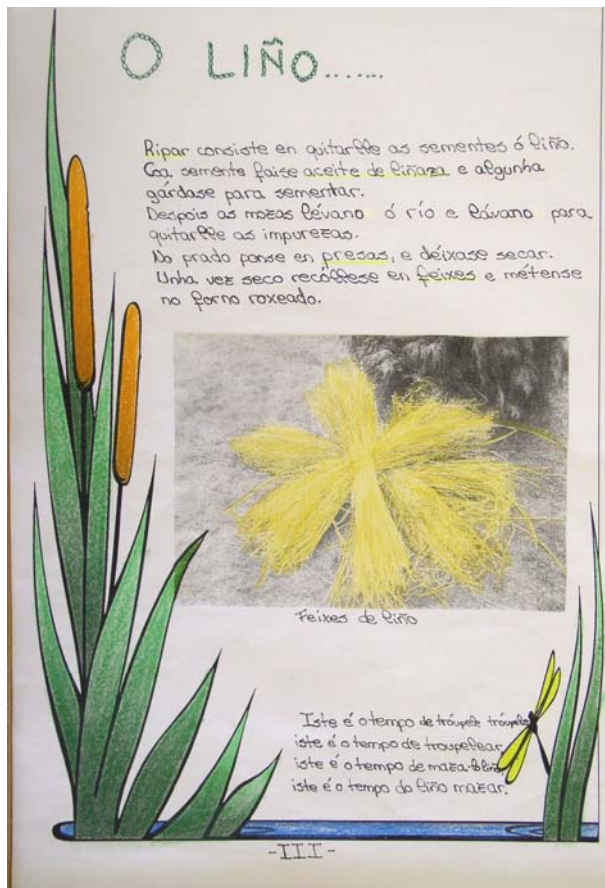 O LIÑO.......
Ripar consiste en quitarlle as sementes ó liño.
Coa semente faise aceite de liñaza e algunha
gárdase para sementar.
Despois as mozas lévano ó río e lávano para
quitarlle as impurezas.
No prado ponse en presas, e déixase secar.
Unha vez seco recóllese en feixes e métense
no forno roxeado.
Feixes de liño
Iste é o tempo de tróupele tróupele
iste é o tempo de troupelear,
iste é o tempo de maza-lo liño
iste é o tempo do liño mazar.
-III-